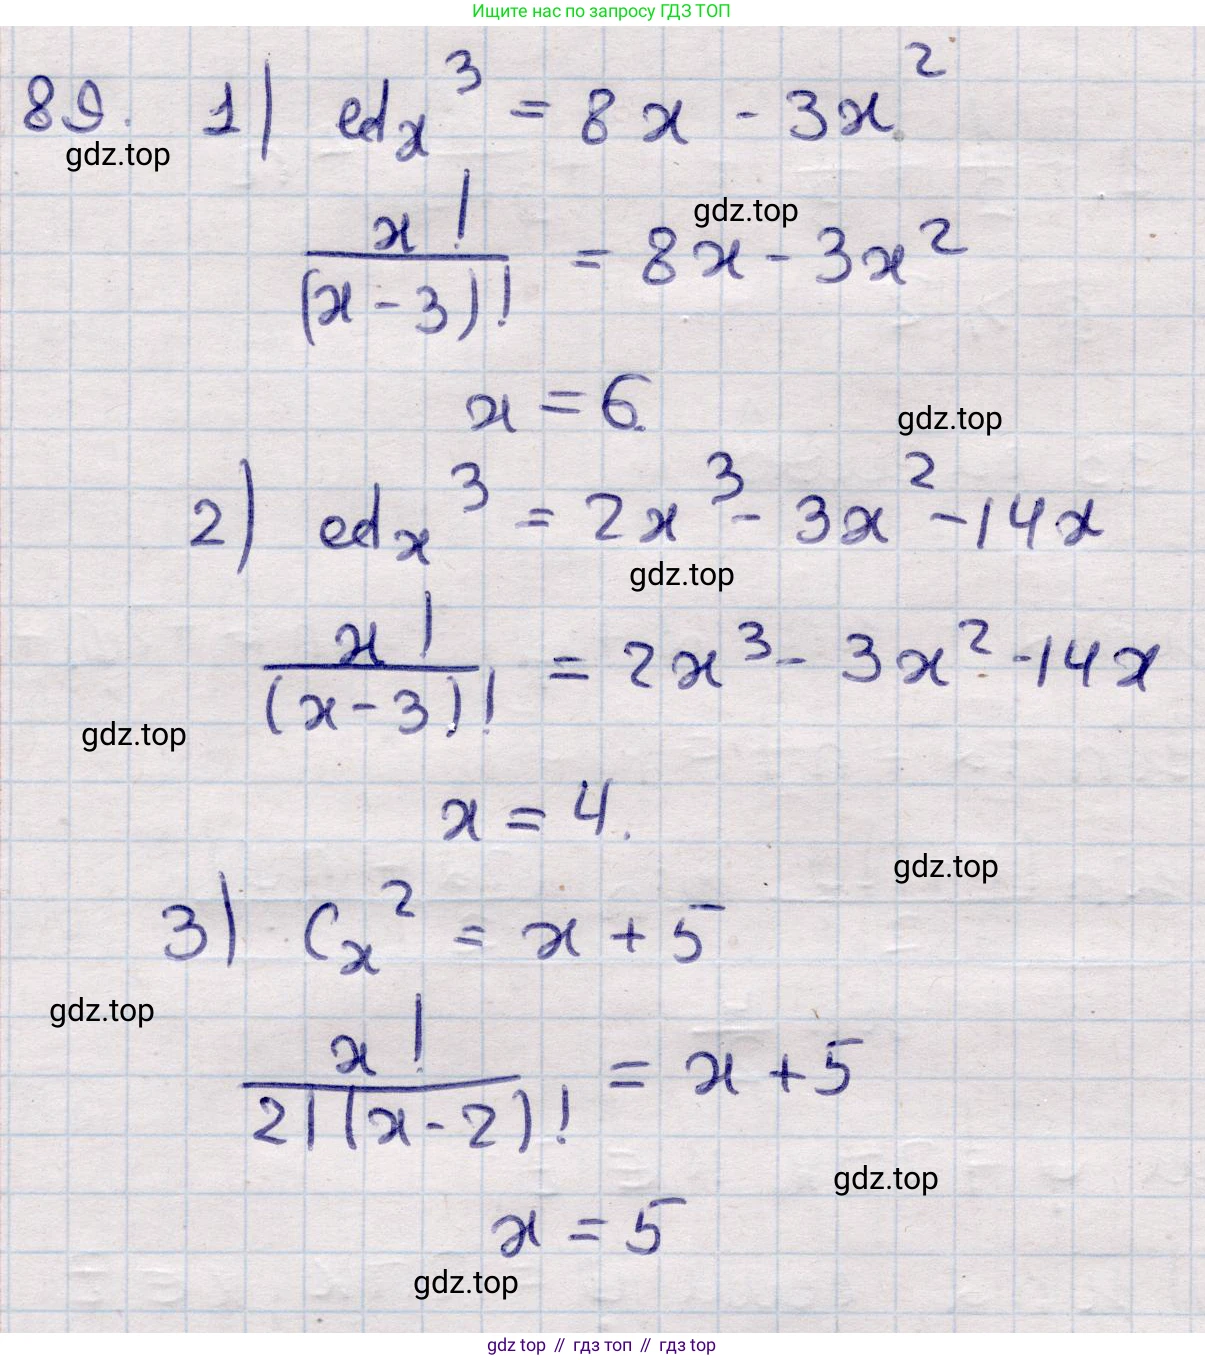 Ищите нас по запросу ГДЗ ТОП
89. 1) A_x^3 = 8x - 3x^2
gdz.top
x! / (x-3)! = 8x - 3x^2
gdz.top
x = 6.
gdz.top
2) A_x^3 = 2x^3 - 3x^2 - 14x
gdz.top
x! / (x-3)! = 2x^3 - 3x^2 - 14x
gdz.top
x = 4.
gdz.top
3) C_x^2 = x + 5
gdz.top
x! / 2!(x-2)! = x + 5
gdz.top
x = 5
gdz.top
gdz top // гдз топ // gdz top